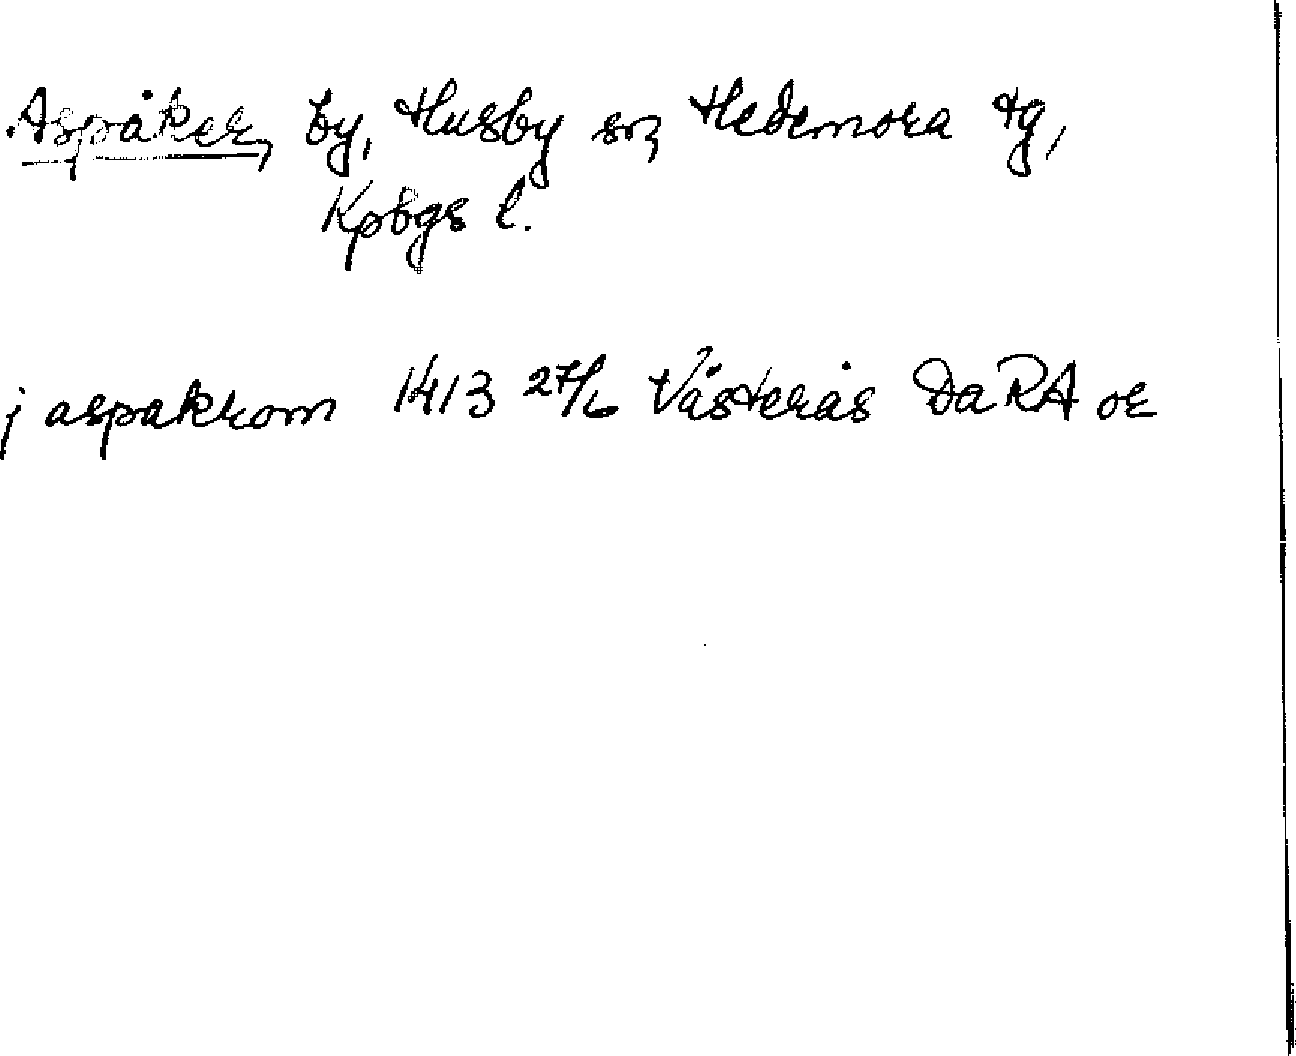 Aspåker, by, Husby sn, Hedemora tg,
Kpbgs l.
j aspakrom 1413 27/6 Västerås DaRA or